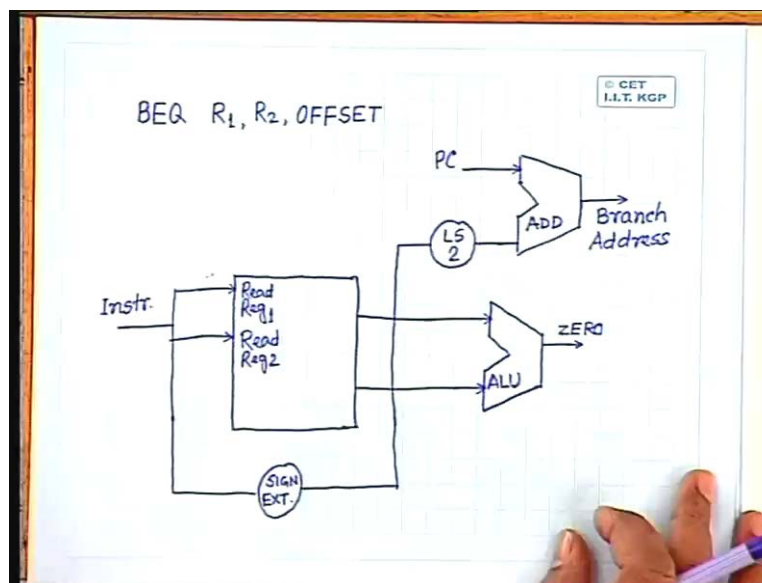 © CET
I.I.T. KGP
BEQ R1, R2, OFFSET
PC
ADD
Branch
Address
LS
2
Instr.
Read
Reg1
Read
Reg2
ZERO
ALU
SIGN
EXT.